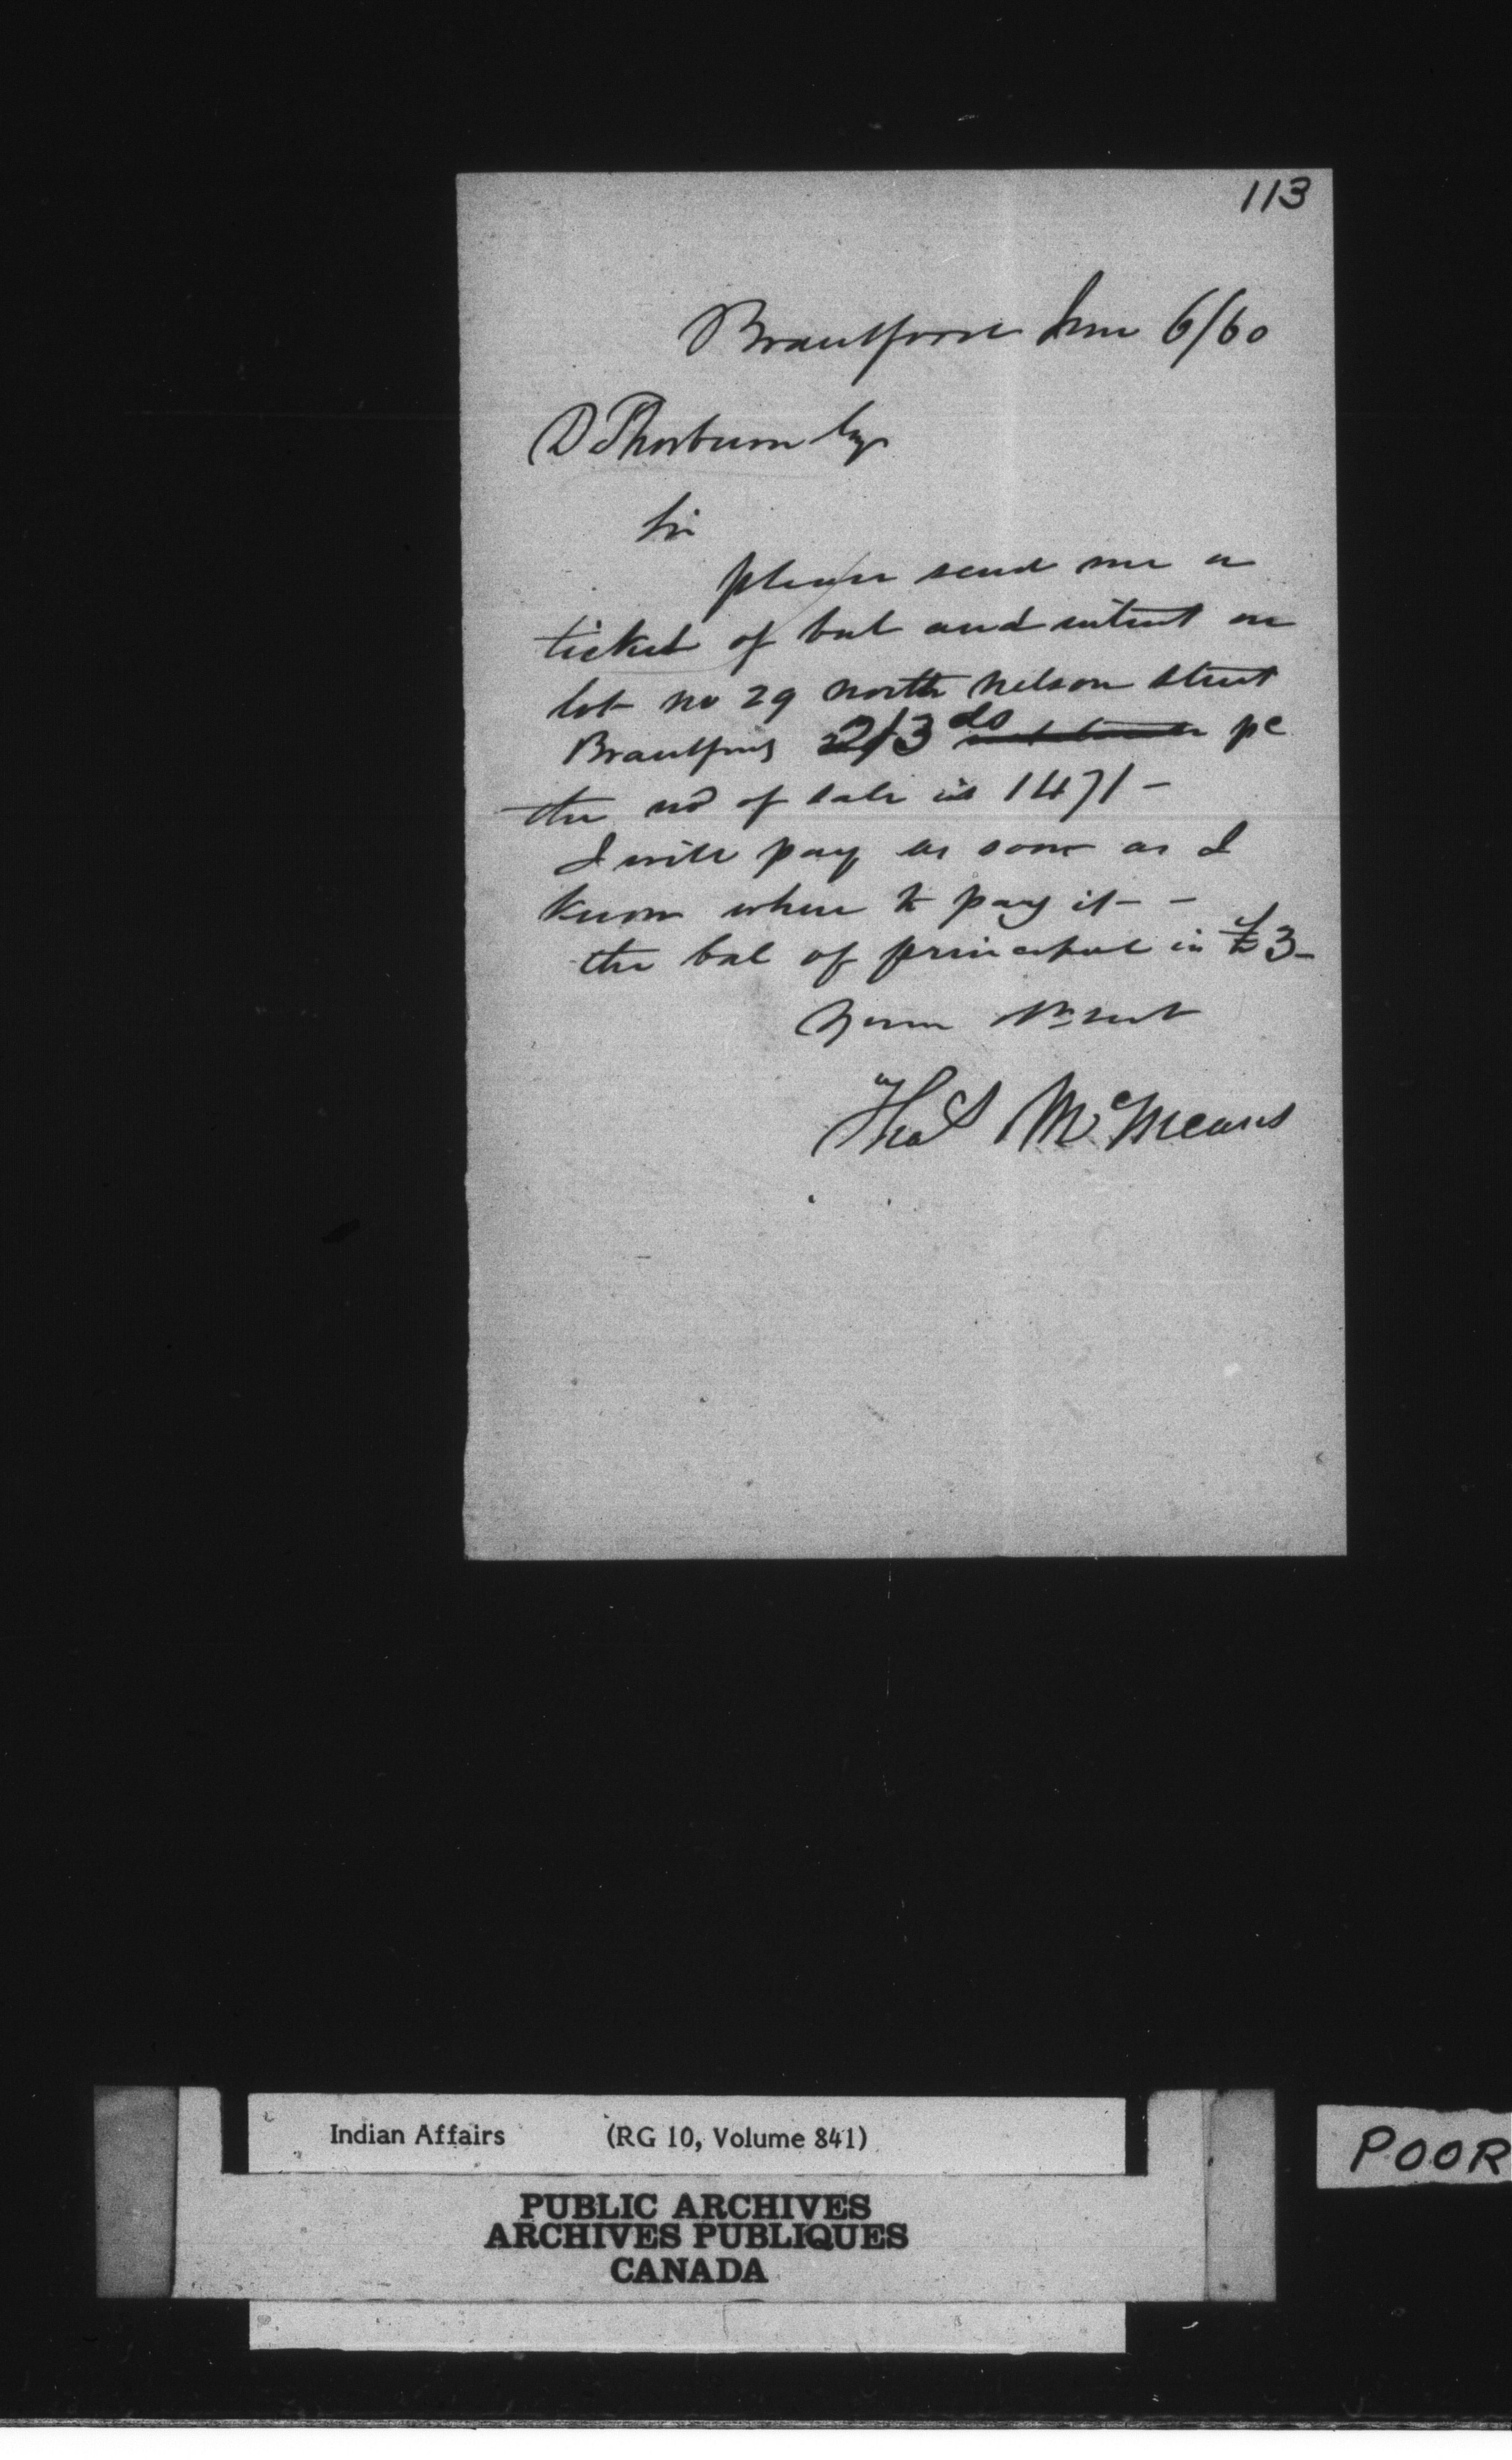 113
Brantford June 6/60
D Thorburn Esqr
Sir
please send me a
ticket of bal and intrest on
lot no 29 north nelson street
Brantford 2/3 ds pc
the no of sale is 1471 -
I will pay as soon as I
know where to pay it - -
the bal of principal is £3 -
Yours
Thos McMeans
Indian Affairs (RG 10, Volume 841)
PUBLIC ARCHIVES
ARCHIVES PUBLIQUES
CANADA
POOR